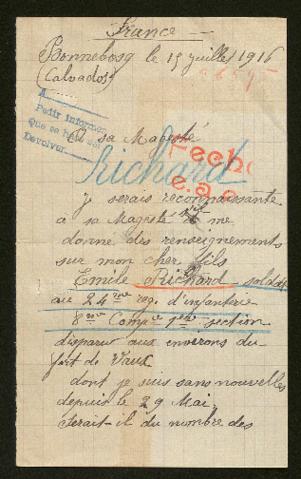 France
Bonnebosq le 15 juillet 1916
(Calvados)
A sa Majesté
Pedir informes
Que se ha
Devolver
Fecho
Richard
je serais reconnaissante
a sa Majesté me
donne des renseignements
sur mon cher fils
Emile Richard soldat
au 24 me reg. d'infanterie
8 me Compie 1ere section
disparu aux environs du
fort de Vaux
dont je suis sans nouvelles
depuis le 29 Mai.
serait-il du nombre des